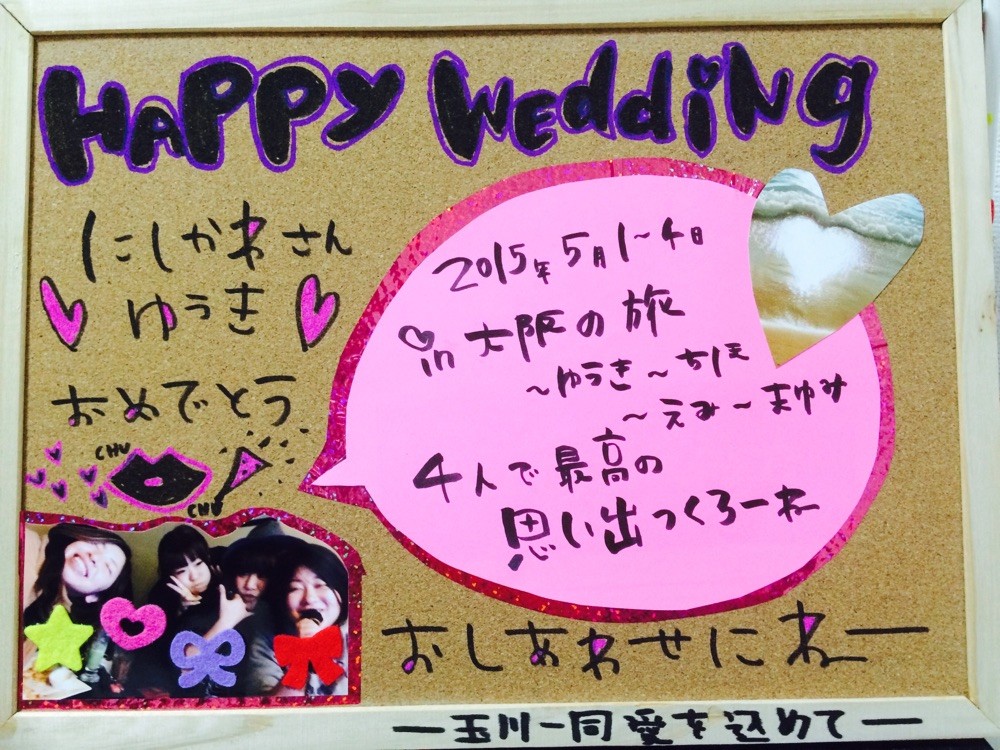 HAPPY WEDDiNG
にしかわさん
ゆうき
おめでとう
CHU
CHU
2015年5月1~4日
in 大阪の旅
~ゆうき~ちほ
~えみ~まゆみ
4人で最高の
思い出つくろーね
おしあわせにねー
ー玉川一同愛を込めてー